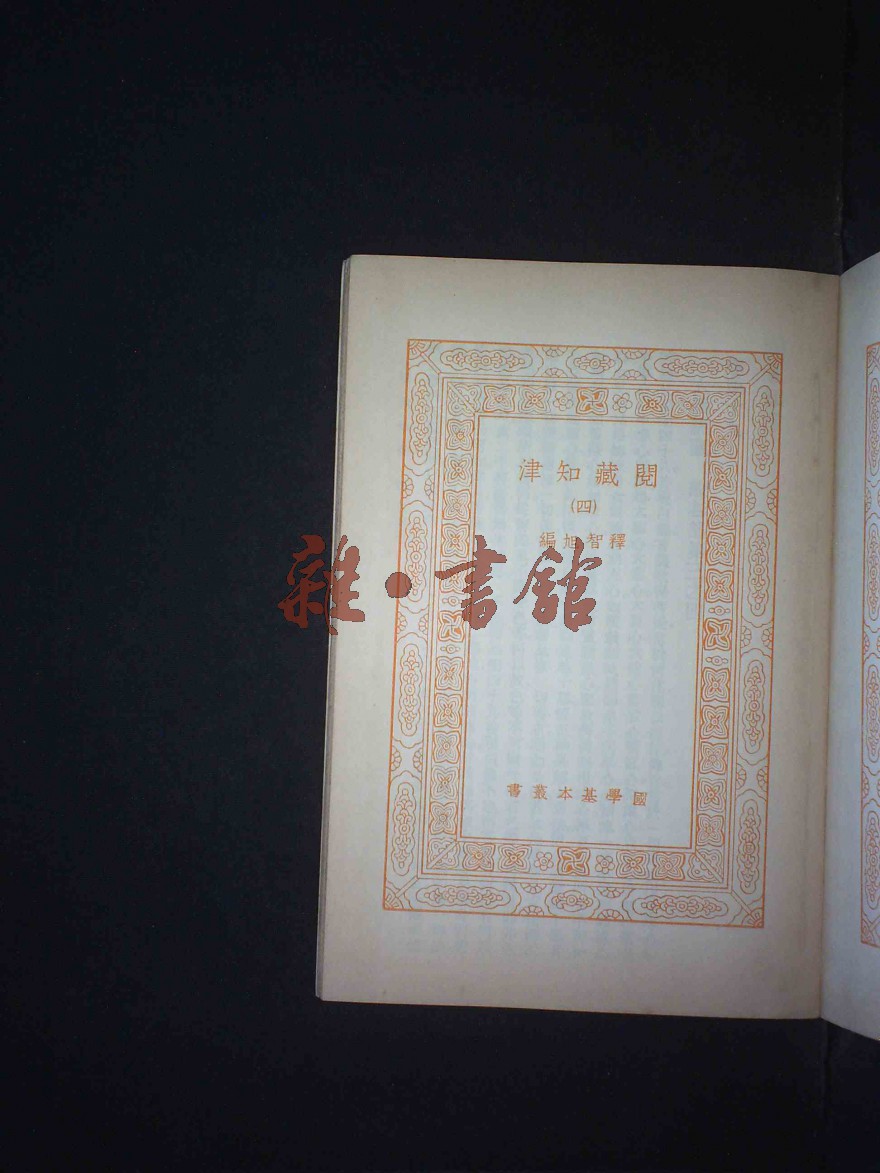 閱藏知津
(四)
釋智旭編
國學基本叢書
雜·書館